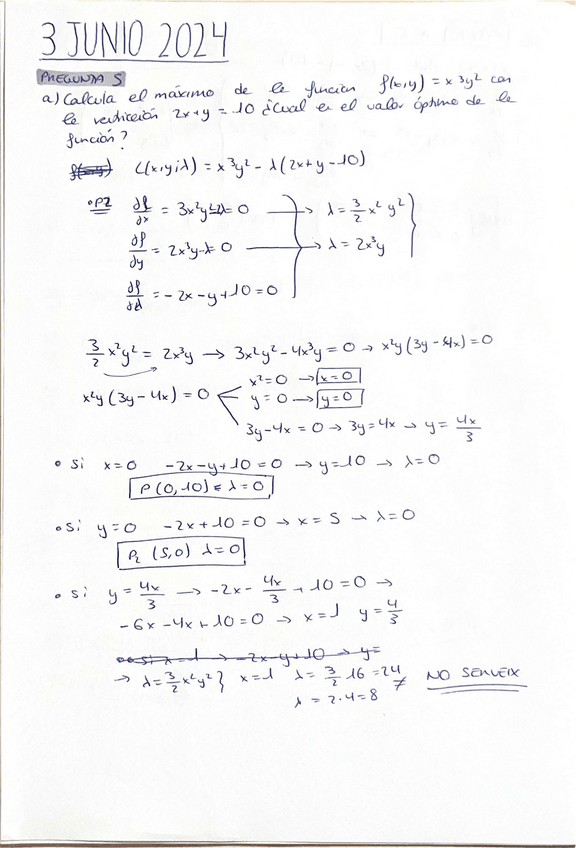 3 JUNIO 2024
PREGUNTA 5
a) Calcula el máximo de la función f(x,y) = x³y² con
la restricción 2x+y = 10 ¿Cual es el valor óptimo de la
función?
L(x,y,λ) = x³y² - λ(2x+y-10)
df/dx = 3x²y²-2λ = 0 → λ = 3/2 x² y²
df/dy = 2x³y-λ = 0 → λ = 2x³y
df/dλ = -2x-y+10 = 0
3/2 x²y² = 2x³y → 3x²y² - 4x³y = 0 → x²y(3y-4x) = 0
x²y(3y-4x) = 0
x² = 0 → x = 0
y = 0 → y = 0
3y-4x = 0 → 3y = 4x → y = 4x/3
• si x=0 -2x-y+10 = 0 → y=10 → λ=0
P(0,10) λ=0
• si y=0 -2x+10 = 0 → x = 5 → λ=0
P₂ (5,0) λ=0
• si y = 4x/3 → -2x - 4x/3 + 10 = 0 →
-6x-4x+10 = 0 → x=1 y = 4/3
si x=1 → -2x-y+10 → y=
→ λ = 3/2 x²y² } x=1 λ = 3/2 16 = 24
≠ NO SERVEIX
λ = 2·4 = 8